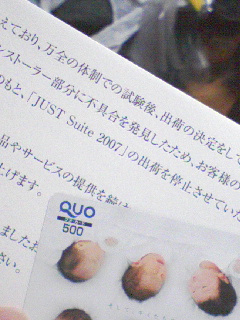 えており、万全の体制での試験後、出荷の決定をして
ストーラー部分に不具合を発見したため、お客様の
のもと、「JUST Suite 2007」の出荷を停止させていた
品やサービスの提供を
上げます。
ましたお
さい。
QUO
500